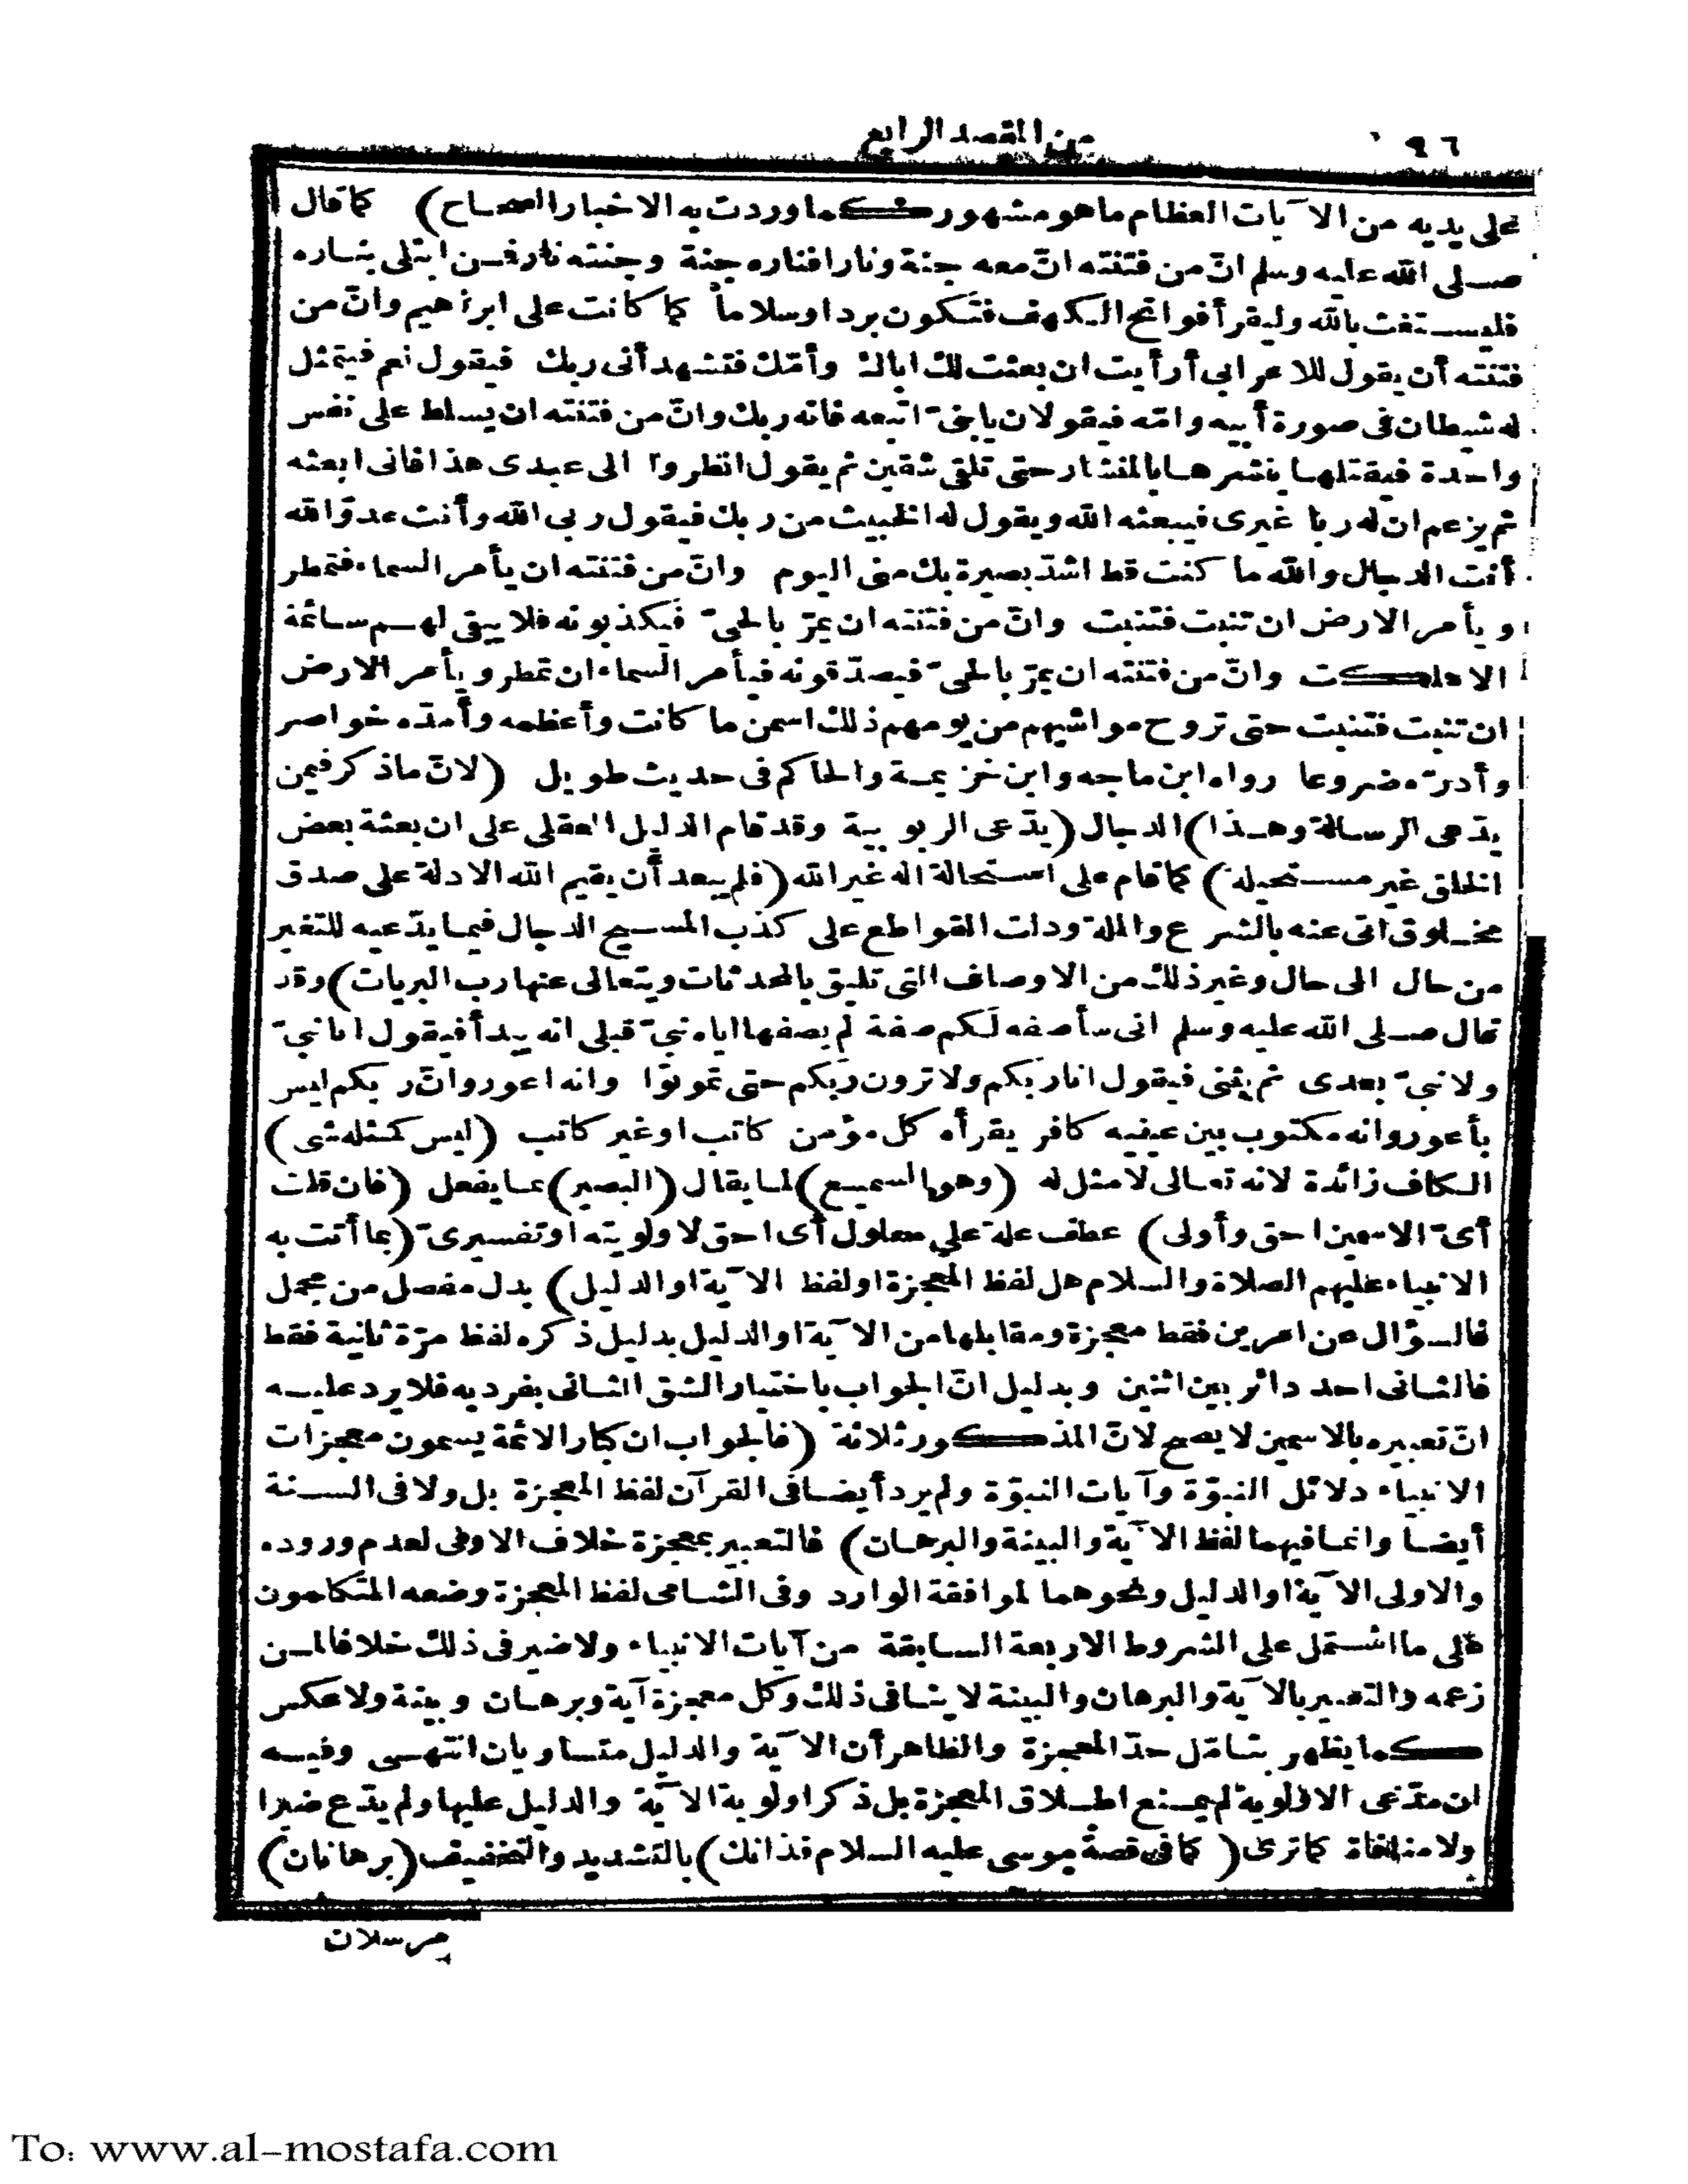 ٩٦
من المقصد الرابع
على يديه من الآيات العظام ما هو مشهور كما وردت به الاخبار الصحاح) كما قال
صلى الله عليه وسلم انّ من فتنته انّ معه جنة ونارا فناره جنة وجنته نار فمن ابتلى بناره
فليستغث بالله وليقرأ فواتح الكهف فتكون بردا وسلاما كما كانت على ابراهيم وانّ من
فتنته أن يقول للاعرابى أرأيت ان بعثت لك اباك وأمّك فتشهد أنى ربك فيقول نعم فيتمثل
له شيطان فى صورة أبيه وامّه فيقولان يا بنىّ اتبعه فانه ربك وانّ من فتنته ان يسلط على نفس
واحدة فيقتلها ينشرها بالمنشار حتى تلقى شقين ثم يقول انظروا الى عبدى هذا فانى ابعثه
ثم يزعم ان له ربا غيرى فيبعثه الله ويقول له الخبيث من ربك فيقول ربى الله وأنت عدوّ الله
أنت الدجال والله ما كنت قط اشدّ بصيرة بك منى اليوم وانّ من فتنته ان يأمر السماء فتمطر
ويأمر الارض ان تنبت فتنبت وانّ من فتنته ان يمرّ بالحىّ فيكذبونه فلا يبقى لهم سائمة
الا هلكت وانّ من فتنته ان يمرّ بالحىّ فيصدّقونه فيأمر السماء ان تمطر ويأمر الارض
ان تنبت فتنبت حتى تروح مواشيهم من يومهم ذلك اسمن ما كانت وأعظمه وأمدّه خواصر
وأدرّه ضروعا رواه ابن ماجه وابن خزيمة والحاكم فى حديث طويل (لانّ ما ذكر فيمن
يدّعى الرسالة وهذا) الدجال (يدّعى الربوبية وقد قام الدليل العقلى على ان بعثة بعض
الخلق غير مستحيلة) كما قام على استحالة اله غير الله (فلم يبعد أن يقيم الله الادلة على صدق
مخلوق اتى عنه بالشرع والملة ودلت القواطع على كذب المسيح الدجال فيما يدّعيه للتغير
من حال الى حال وغير ذلك من الاوصاف التى تليق بالمحدثات ويتعالى عنها رب البريات) وقد
قال صلى الله عليه وسلم انى سأصفه لكم صفة لم يصفها اياه نبىّ قبلى انه يبدأ فيقول انا نبىّ
ولا نبىّ بعدى ثم يثنى فيقول انا ربكم ولا ترون ربكم حتى تموتوا وانه اعور وانّ ربكم ليس
بأعور وانه مكتوب بين عينيه كافر يقرأه كل مؤمن كاتب او غير كاتب (ليس كمثله شى)
الكاف زائدة لانه تعالى لا مثل له (وهو السميع) لما يقال (البصير) عما يفعل (فان قلت
أىّ الاسمين احق وأولى) عطف علة على معلول أى احق لاولويته او تفسيرىّ (بما أتت به
الانبياء عليهم الصلاة والسلام هل لفظ المعجزة او لفظ الآية او الدليل) بدل مفصل من مجمل
فالسؤال عن امرين فقط معجزة ومقابلها من الآية او الدليل بدليل ذكره لفظ مرّة ثانية فقط
فالثانى احد دائر بين اثنين وبدليل انّ الجواب باختيار الشق الثانى بفرديه فلا يرد عليه
انّ تعبيره بالاسمين لا يصح لانّ المذكور ثلاثة (فالجواب ان كبار الائمة يسمون معجزات
الانبياء دلائل النبوّة وآيات النبوّة ولم يرد أيضا فى القرآن لفظ المعجزة بل ولا فى السنة
أيضا وانما فيهما لفظ الآية والبينة والبرهان) فالتعبير بمعجزة خلاف الاولى لعدم وروده
والاولى الآية او الدليل ونحوهما لموافقة الوارد وفى الشامى لفظ المعجزة وضعه المتكلمون
على ما اشتمل على الشروط الاربعة السابقة من آيات الانبياء ولا ضير فى ذلك خلافا لمن
زعمه والتعبير بالآية والبرهان والبينة لا ينافى ذلك وكل معجزة آية وبرهان وبينة ولا عكس
كما يظهر بتأمّل حدّ المعجزة والظاهر أن الآية والدليل متساويان انتهى وفيه
ان مدّعى الاولوية لم يمنع اطلاق المعجزة بل ذكر اولوية الآية والدليل عليها ولم يدّع ضيرا
ولا منافاة كما ترى (كما فى قصة موسى عليه السلام فذانك) بالتشديد والتخفيف (برهانان)
مرسلان
To: www.al-mostafa.com